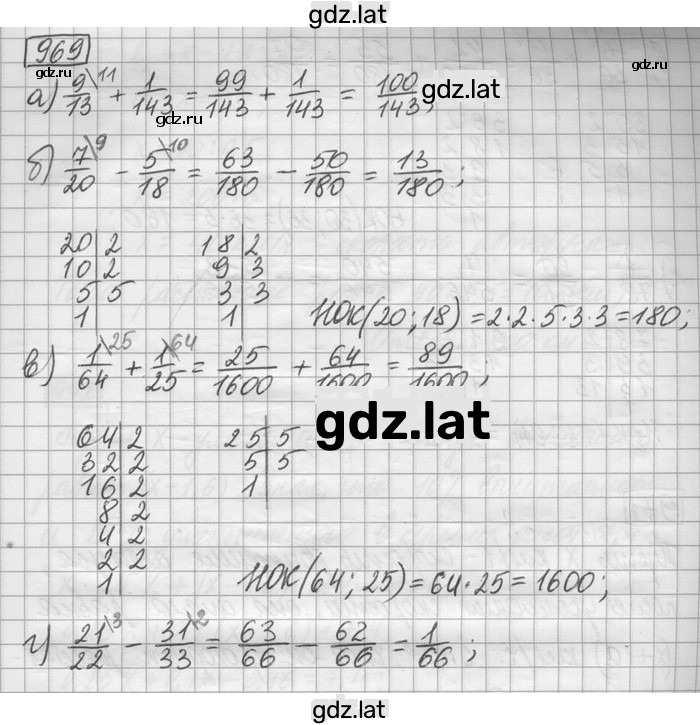 gdz.lat
969
gdz.lat
gdz.lat
а) 9/13 \11 + 1/143 = 99/143 + 1/143 = 100/143;
gdz.lat
gdz.lat
б) 7/20 \9 - 5/18 \10 = 63/180 - 50/180 = 13/180;
20|2 18|2
10|2 9|3
5|5 3|3
1| 1|
НОК(20;18)=2·2·5·3·3=180;
в) 1/64 \25 + 1/25 \64 = 25/1600 + 64/1600 = 89/1600;
gdz.lat
64|2 25|5
32|2 5|5
16|2 1|
8|2
4|2
2|2
1|
НОК(64; 25)=64·25=1600;
г) 21/22 \3 - 31/33 \2 = 63/66 - 62/66 = 1/66;
gdz.lat